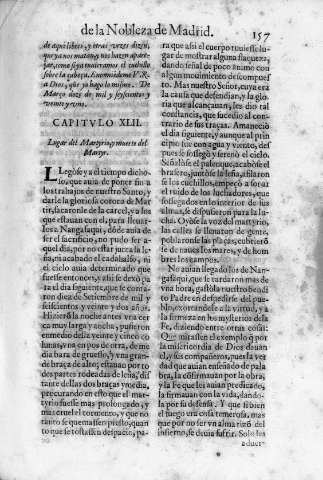 de la Nobleza de Madrid. 157
de aquí libres, y otras vezes dizen,
que ya nos matan: y nos hazen aparejar,
como si ya tuuieramos el cuchillo
sobre la cabeça. Encomiendeme V. R.
a Dios, que yo hago lo mismo. De
Março diez de mil y seyscientos y
veynte y vno.
CAPITVLO XLII.
Lugar del Martyrio, y muerte del
Martyr.
LLegòse ya el tiempo dichoso,
que auia de poner fin a
los trabajos de nuestro Santo, y
darle la gloriosa corona de Martir,
sacaronle de la carcel, y a los
que estauan con el, para lleuarlos
a Nangasaqui, dõde auia de
ser el sacrificio, no pudo ser a
quel dia, por no estar junta la leña,
ni acabado el cadahalso, ni
el cielo auia determinado que
fuesse entonces, y assi se dexò para
el dia siguiente, que se contaron
diez de Setiembre de mil y
seyscientos y veinte y dos años.
Hizierõ la noche antes vna cerca
muy larga y ancha, pusieron
enmedio della veinte y cinco columnas,
en cuerpos de erra, de media
bara de grueso, y vna grande
braça de alto; estauan por todas
partes rodeadas de leña, distante
dellas dos braças y media,
procurando en esto que el martyrio
fuesse mas prolongado, y
mas cruel el tormento, y que no
tanto se quemassen, quanto
que se tostassen despacio, para
que assi el cuerpo tuuiesse lugar
de mostrar alguna flaqueza,
dando señal de poco animo con
algun mouimiento de descompuesto.
Mas nuestro Señor, cuya era
la causa que defendian, y la gloria
que alcançauan, les dio tal
constancia, que sucedio al contrario
de sus traças. Amanecio
el dia siguiente, y aunque al principio
fue con agua y viento, despues
se sossegò y serenò el cielo.
Señalòse el palenque, acabòse el
brasero, juntòse la leña, afilaron
se los cuchillos, empeçò a sonar
el ruido de los luchadores, que
sossegados en lo interior de sus
almas, se dispusieron para la lucha.
Oyòse la voz del martyrio,
las calles se llenaron de gente,
poblaronse las plaças, cubrierõ
se de naues los mares, y de hombres
los campos.
No auian llegado los de Nangasaqui,
que se tardaron mas de
vna hora, gastòla nuestro bendito
Padre en despedirse del pueblo,
exortandole a la virtud, y a
la firmeza en los mysterios de la
Fe, diziendo entre otras cosas:
Que mirassen el exemplo q por
la misericordia de Dios dauan
el, y sus compañeros, pues la verdad
que auian enseñado de palabra,
la confirmauan por la obra,
y la Fe que les auian predicado,
la firmauan con la vida, dandola
por su defensa. Y que si bien
el fuego era cosa temerosa, mas
que por no ser vn alma tizon del
infierno, se deuia sufrir. Solo les
aduer-